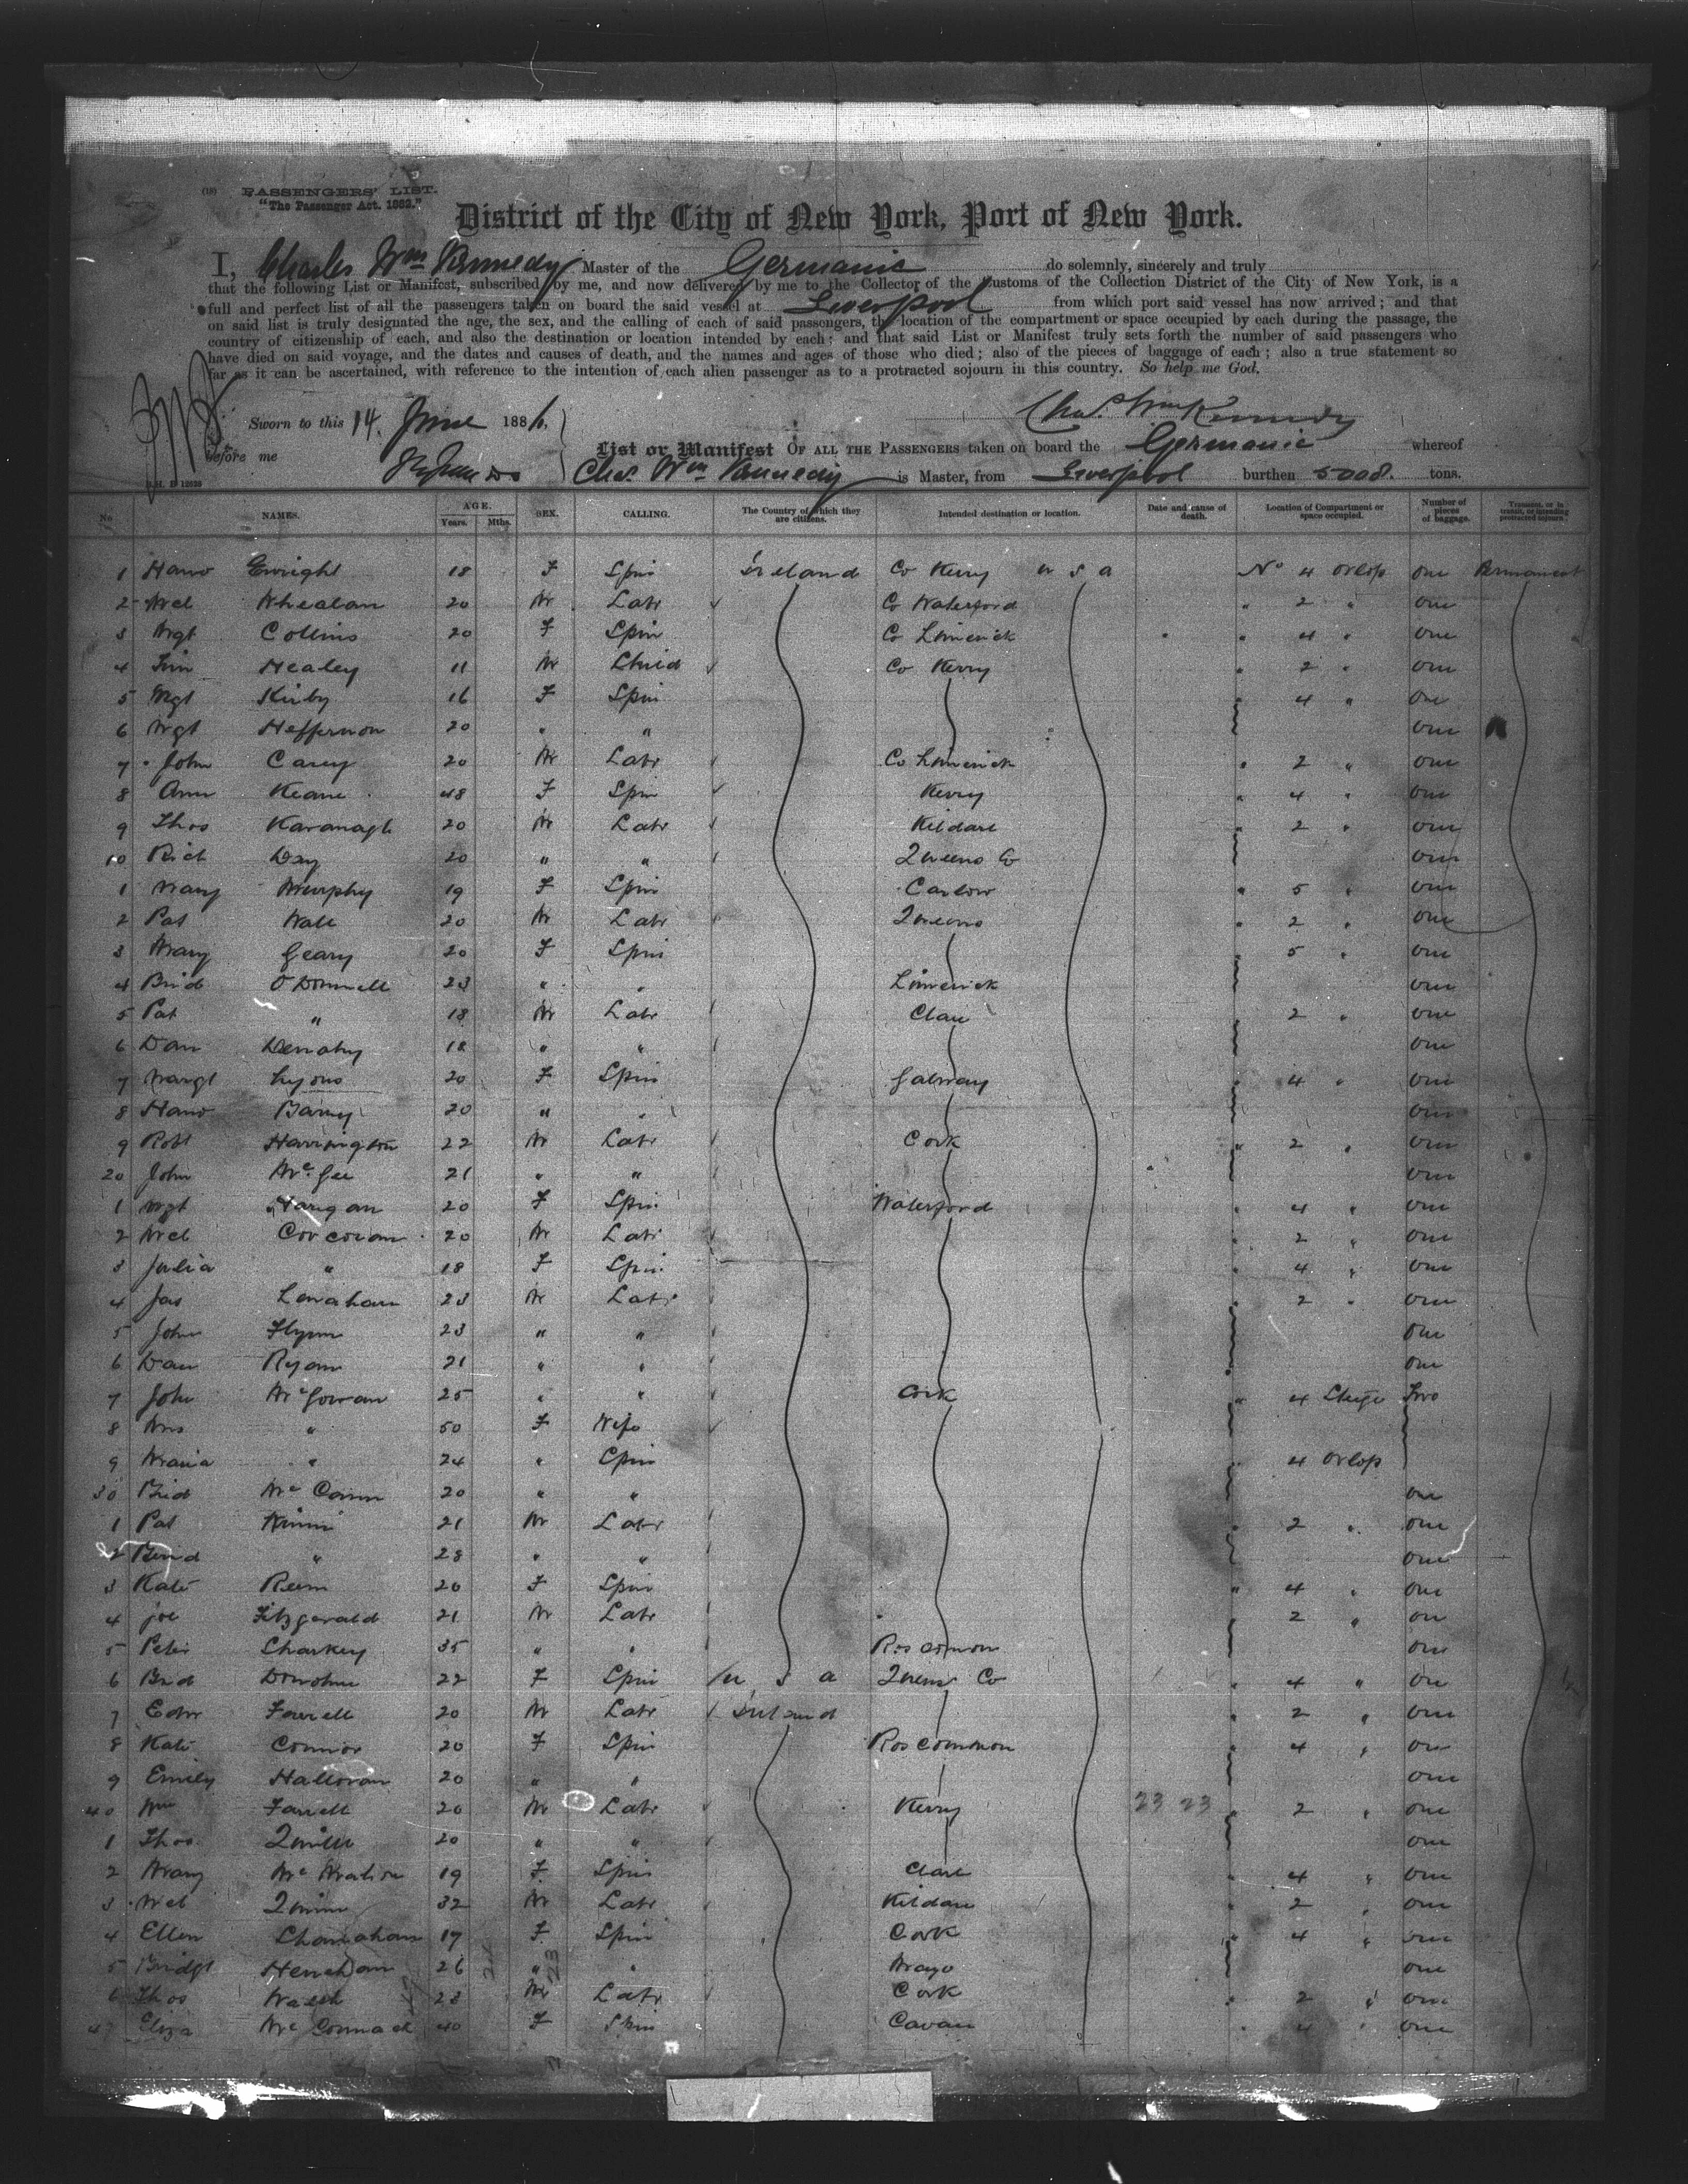 (19) PASSENGERS' LIST.
"The Passenger Act. 1882."
District of the City of New York, Port of New York.
I, Charles Wm Kennedy Master of the Germanic do solemnly, sincerely and truly
that the following List or Manifest, subscribed by me, and now delivered by me to the Collector of the Customs of the Collection District of the City of New York, is a
full and perfect list of all the passengers taken on board the said vessel at Liverpool from which port said vessel has now arrived; and that
on said list is truly designated the age, the sex, and the calling of each of said passengers, the location of the compartment or space occupied by each during the passage, the
country of citizenship of each, and also the destination or location intended by each; and that said List or Manifest truly sets forth the number of said passengers who
have died on said voyage, and the dates and causes of death, and the names and ages of those who died; also of the pieces of baggage of each; also a true statement so
far as it can be ascertained, with reference to the intention of each alien passenger as to a protracted sojourn in this country. So help me God.
Chas. Wm Kennedy
Sworn to this 14. June 1886,
before me
List or Manifest OF ALL THE PASSENGERS taken on board the Germanic whereof
Chas. Wm Kennedy is Master, from Liverpool burthen 5008. tons.
No. NAMES. AGE. Years. Mths. SEX. CALLING. The Country of which they are citizens. Intended destination or location. Date and cause of death. Location of Compartment or space occupied. Number of pieces of baggage. Transient, or in transit, or intending protracted sojourn.
1 Hano Enright 18 F Spin Ireland Co Kerry U S A No 4 Orlop one Permanent
2 Mcl Whealan 20 M Labr Co Waterford " 2 " one
3 Mgt Collins 20 F Spin Co Limerick " 4 " one
4 Tim Healey 11 M Child Co Kerry " 2 " one
5 Mgt Kirby 16 F Spin " 4 " one
6 Mgt Heffernon 20 " " one
7 John Carey 20 M Labr Co Limerick " 2 " one
8 Ann Keane 48 F Spin Kerry " 4 " one
9 Thos Kavanagh 20 M Labr Kildare " 2 " one
10 Rich Day 20 " " Queens Co one
1 Mary Murphy 19 F Spin Carlow " 5 " one
2 Pat Wall 20 M Labr Queens " 2 " one
3 Mary Geary 20 F Spin 5 " one
4 Brid O'Donnell 23 " " Limerick one
5 Pat " 18 M Labr Clare 2 " one
6 Dan Denahy 18 " " one
7 Margt Lyons 20 F Spin Galway " 4 " one
8 Hano Barry 20 " " one
9 Robt Harrington 22 M Labr Cork " 2 " one
20 John McGee 21 " " one
1 Mgt Hangan 20 F Spin Waterford " 4 " one
2 Mcl Corcoran 20 M Labr " 2 " one
3 Julia " 18 F Spin " 4 " one
4 Jas Lenahan 23 M Labr " 2 " one
5 John Flynn 23 " " one
6 Dan Ryan 21 " " one
7 John McGowan 25 " " Cork " 4 Stege Two
8 Mrs " 50 F Wife
9 Maria " 24 " Spin " 4 Orlop
30 Brid McCann 20 " " one
1 Pat 21 M Labr " 2 " one
2 " 28 " " one
3 Kate 20 F Spin " 4 " one
4 Joe Fitzgerald 21 M Labr 2 " on
5 Peter Sharkey 35 " " Roscomon one
6 Brd Donohue 22 F Spin U S A Queens Co " 4 " on
7 Edw Farrell 20 M Labr Ireland " 2 " one
8 Kate Connor 20 F Spin Roscommon " 4 " on
9 Emily Halloran 20 " " one
40 Wm Farrell 20 M Labr Kerry 23 23 " 2 " one
1 Thos Quill 20 " " one
2 Mary McMahon 19 F Spin Clare " 4 " one
3 Mcl Quinn 32 M Labr Kildare " 2 " one
4 Ellen Shanahan 17 F Spin Cork " 4 " one
5 Bridgt Henehan 26 " " Mayo one
6 Thos Walsh 23 M Labr Cork " 2 " one
47 Eliza McCormack 40 F Spin Cavan " 4 " one